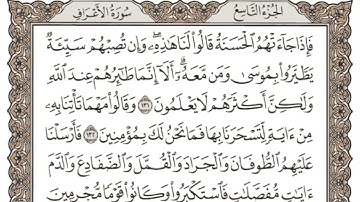 سُورَةُ الأَعْرَافِ الجُزْءُ التَّاسِعُ
فَإِذَا جَآءَتْهُمُ ٱلْحَسَنَةُ قَالُوا۟ لَنَا هَـٰذِهِۦ وَإِن تُصِبْهُمْ سَيِّئَةٌ
يَطَّيَّرُوا۟ بِمُوسَىٰ وَمَن مَّعَهُۥٓ أَلَآ إِنَّمَا طَـٰٓئِرُهُمْ عِندَ ٱللَّهِ
وَلَـٰكِنَّ أَكْثَرَهُمْ لَا يَعْلَمُونَ ١٣١ وَقَالُوا۟ مَهْمَا تَأْتِنَا بِهِۦ
مِنْ ءَايَةٍ لِّتَسْحَرَنَا بِهَا فَمَا نَحْنُ لَكَ بِمُؤْمِنِينَ ١٣٢ فَأَرْسَلْنَا
عَلَيْهِمُ ٱلطُّوفَانَ وَٱلْجَرَادَ وَٱلْقُمَّلَ وَٱلضَّفَادِعَ وَٱلدَّمَ
ءَايَـٰتٍ مُّفَصَّلَـٰتٍ فَٱسْتَكْبَرُوا۟ وَكَانُوا۟ قَوْمًا مُّجْرِمِينَ